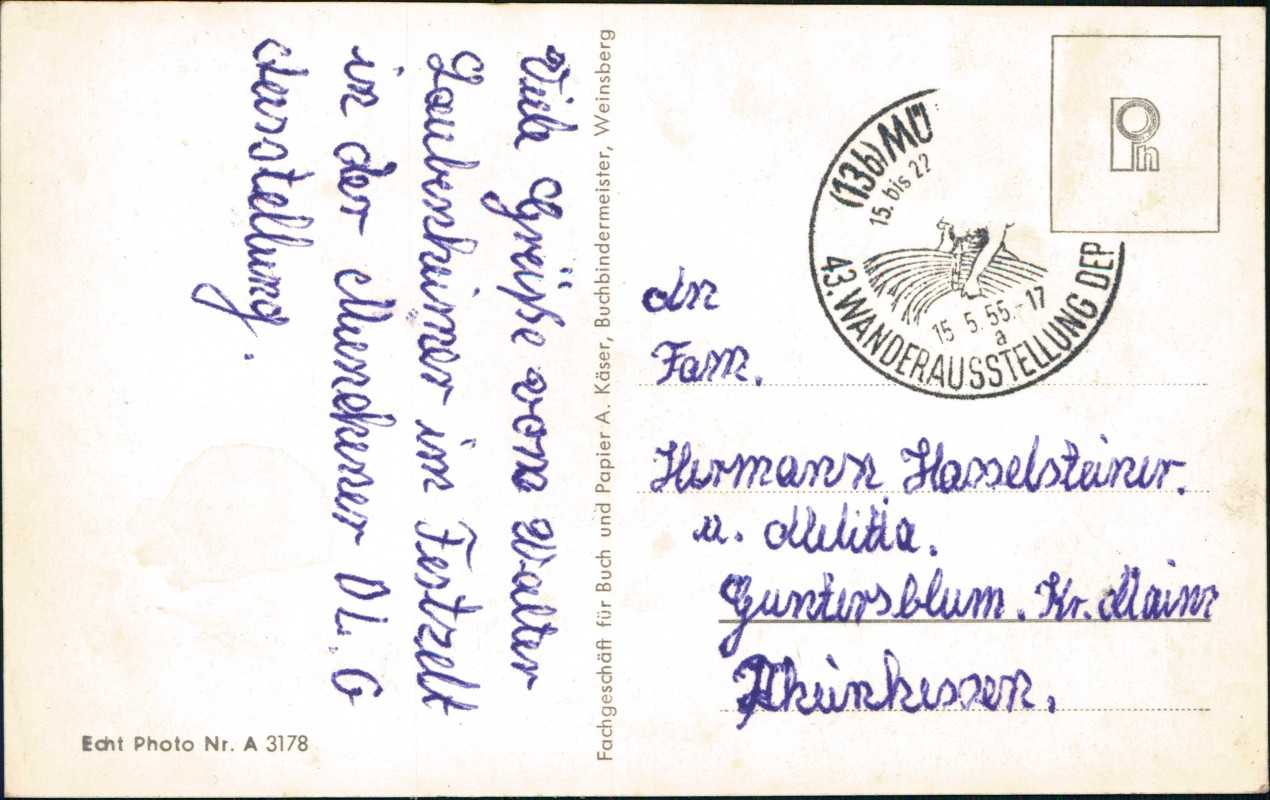 Viele Grüße vom Walter
Laubenheimer im Festzelt
in der Münchener D.L.G
Ausstellung.
Fachgeschäft für Buch und Papier A. Käser, Buchbindermeister, Weinsberg
Echt Photo Nr. A 3178
(13b) MÜ
15. bis 22
43. WANDERAUSSTELLUNG DER
15 5.55.-17
a
Ph
An
Fam.
Hermann Hasselsteiner.
u. Melitta.
Guntersblum. Kr. Mainz
Rheinhessen.